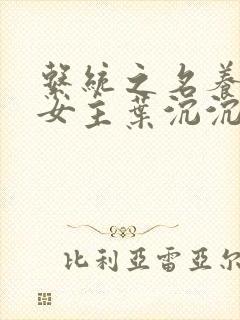 繫統之名養
女主葉沉沉
比利亞雷亞尔